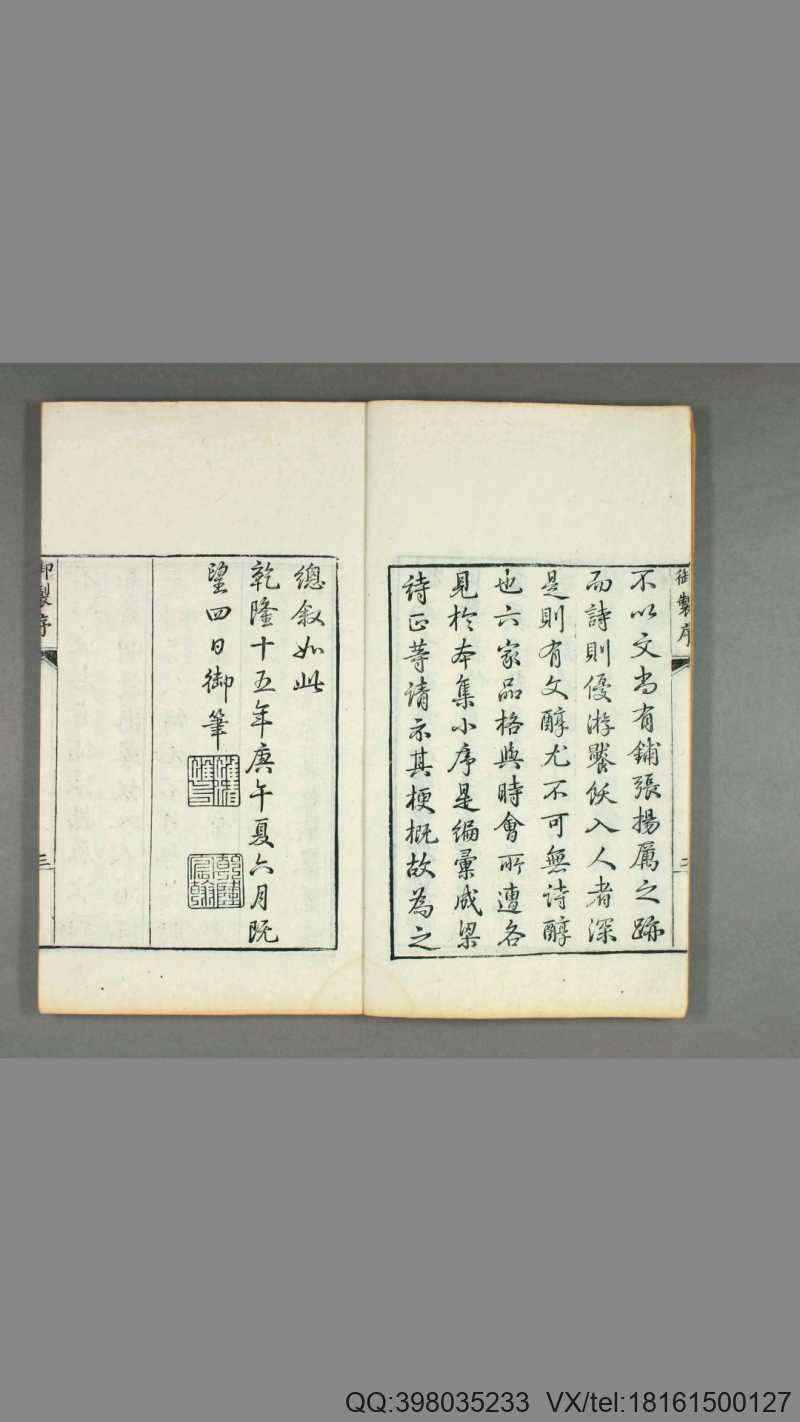 御製序
不以文尚有鋪張揚厲之跡
而詩則優游饜飫入人者深
是則有文醇尤不可無詩醇
也六家品格與時會所遭各
見於本集小序是編彙成梁
詩正等請示其梗概故為之
二
總敘如此
乾隆十五年庚午夏六月既
望四日御筆
乾隆宸翰
御製序
三
QQ:398035233 VX/tel:18161500127